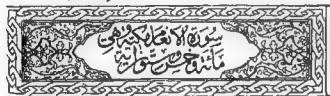 سورة الانعام مكية وهي
مائة وخمس وستون اية